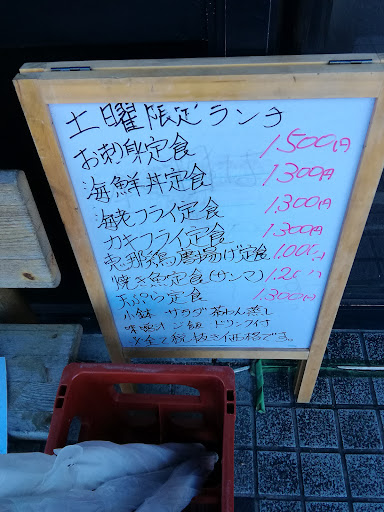 土曜限定ランチ
お刺身定食 1,500円
海鮮丼定食 1300円
海老フライ定食 1,300円
カキフライ定食 1,300円
恵那鶏の唐揚げ定食 1,000円
焼き魚定食(サンマ) 1,20 円
天ぷら定食 1,300円
小鉢 サラダ 茶わん蒸し
味噌汁 ご飯 ドリンク付
※全て税抜き価格です。